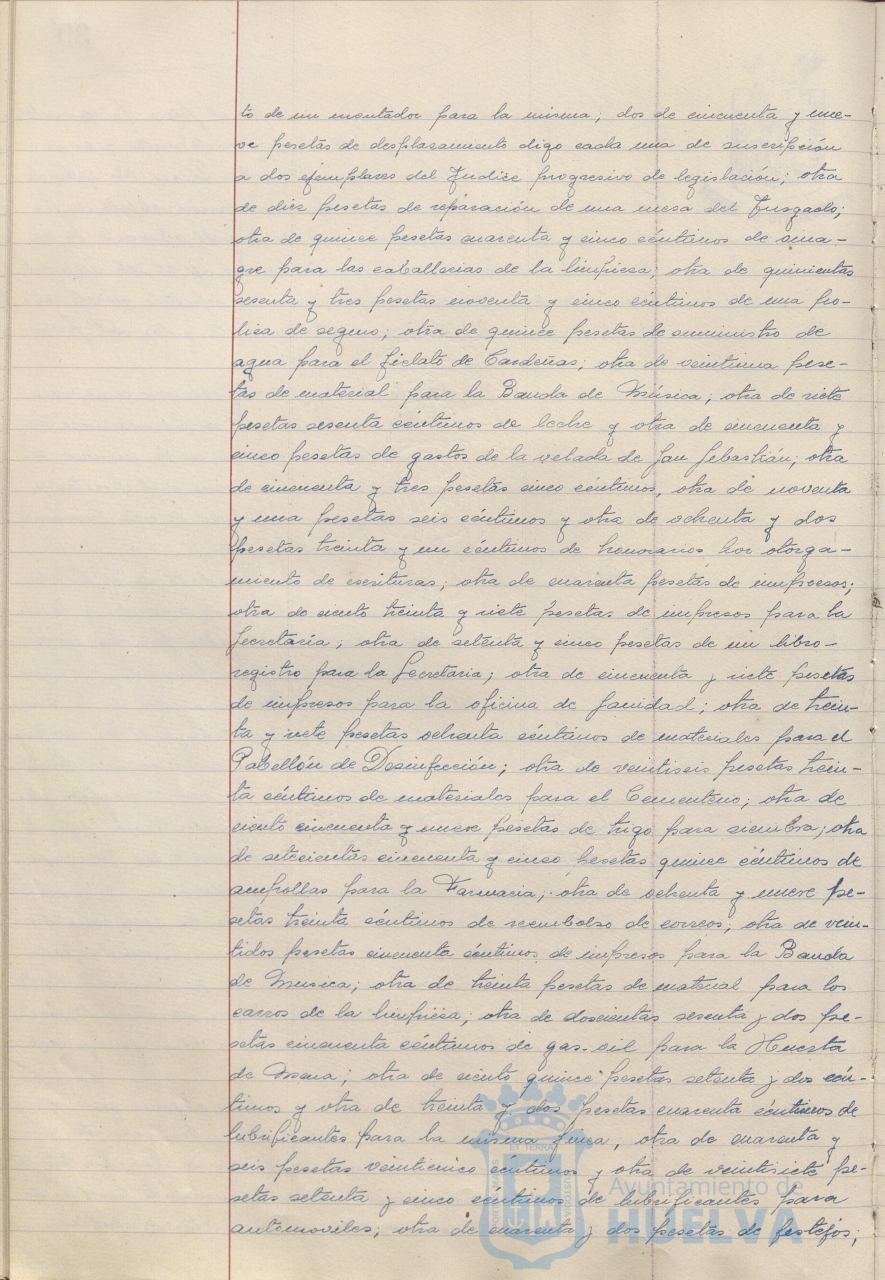 to de un montador para la misma; dos de cincuenta y nue-
ve pesetas de desplasamento digo cada una de suscripción
a dos ejemplares del Indice progresivo de legislación; otra
de diez pesetas de reparación de una mesa del Juzgado;
otra de quince pesetas cuarenta y cinco céntimos de vina-
gre para las caballerias de la limpiesa; otra de quinientas
sesenta y tres pesetas noventa y cinco céntimos de una po-
lisa de seguro; otra de quince pesetas de suministro de
agua para el fielato de Cardeñas; otra de veintiuna pese-
tas de material para la Banda de Música; otra de siete
pesetas sesenta céntimos de leche y otra de cincuenta y
cinco pesetas de gastos de la velada de San Sebastián; otra
de cincuenta y tres pesetas cinco céntimos, otra de noventa
y una pesetas seis céntimos y otra de ochenta y dos
pesetas treinta y un céntimos de honorarios por otorga-
miento de escrituras; otra de cuarenta pesetas de impresos;
otra de ciento treinta y siete pesetas de impresos para la
Secretaría; otra de setenta y cinco pesetas de un libro-
registro para la Secretaria; otra de cincuenta y siete pesetas
de impresos para la oficina de Sanidad; otra de trein-
ta y siete pesetas ochenta céntimos de materiales para el
Pabellón de Desinfección; otra de veintiseis pesetas trein-
ta céntimos de materiales para el Cementerio; otra de
ciento cincuenta y nueve pesetas de trigo para siembra; otra
de setecientas cincuenta y cinco pesetas quince céntimos de
ampollas para la Farmacia; otra de ochenta y nueve pe-
setas treinta céntimos de reembolso de correos; otra de vein-
tidos pesetas cincuenta céntimos de impresos para la Banda
de Musica; otra de treinta pesetas de material para los
carros de la limpiesa; otra de doscientas sesenta y dos pe-
setas cincuenta céntimos de gas-oil para la Huerta
de Mena; otra de ciento quince pesetas setenta y dos cén-
timos y otra de treinta y dos pesetas cuarenta céntimos de
lubrificantes para la misma finca, otra de cuarenta y
seis pesetas veinticinco céntimos y otra de veintisiete pe-
setas setenta y cinco céntimos de lubrificantes para
automoviles; otra de cuarenta y dos pesetas de festejos;
Ayuntamiento de
HUELVA